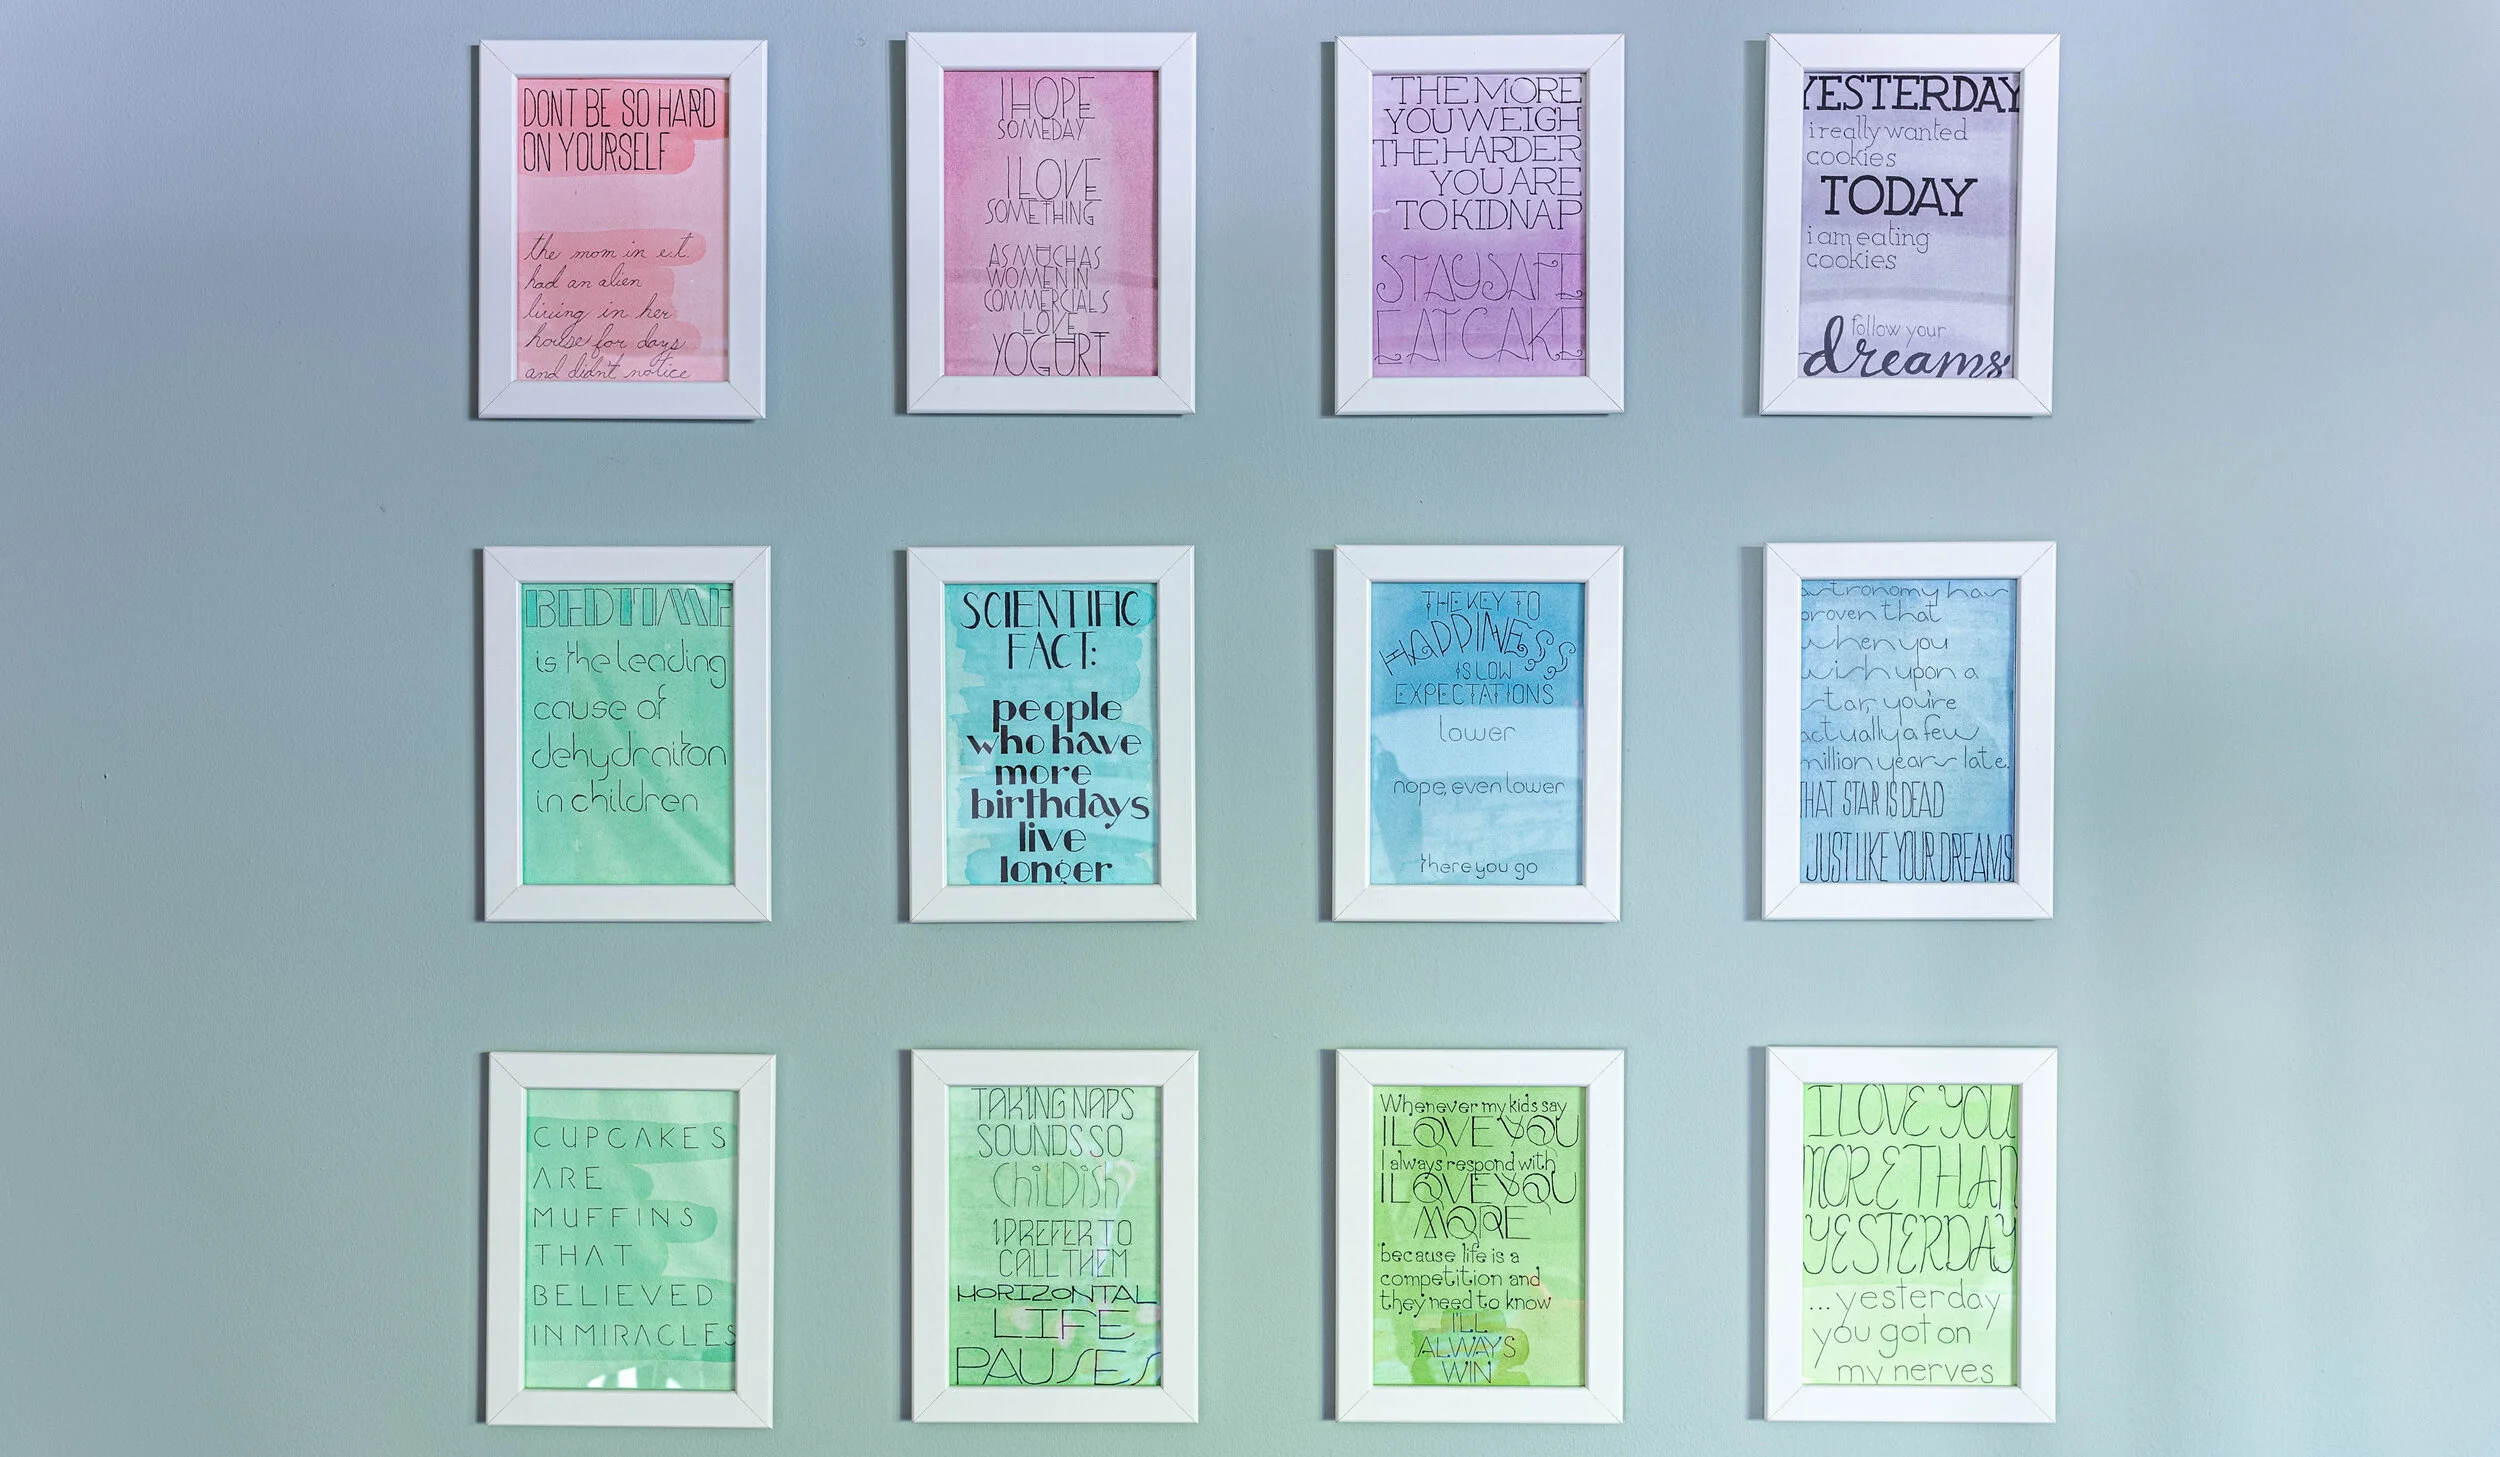 DONT BE SO HARD
ON YOURSELF
the mom in e.t.
had an alien
living in her
house for days
and didn't notice
I HOPE
SOMEDAY
I LOVE
SOMETHING
AS MUCH AS
WOMEN IN
COMMERCIALS
LOVE
YOGURT
THE MORE
YOU WEIGH
THE HARDER
YOU ARE
TO KIDNAP
STAY SAFE
EAT CAKE
YESTERDAY
i really wanted
cookies
TODAY
i am eating
cookies
follow your
dreams
BEDTIME
is the leading
cause of
dehydraiton
in children
SCIENTIFIC
FACT:
people
who have
more
birthdays
live
longer
THE KEY TO
HAPPINESS
IS LOW
EXPECTATIONS
lower
nope, even lower
there you go
astronomy has
proven that
when you
wish upon a
star, you're
actually a few
million years late.
THAT STAR IS DEAD
JUST LIKE YOUR DREAMS
CUPCAKES
ARE
MUFFINS
THAT
BELIEVED
IN MIRACLES
TAKING NAPS
SOUNDS SO
CHiLDiSh
I PREFER TO
CALL THEM
HORIZONTAL
LIFE
PAUSES
Whenever my kids say
I LOVE YOU
I always respond with
I LOVE YOU
MORE
because life is a
competition and
they need to know
I'LL
ALWAYS
WIN
I LOVE YOU
MORE THAN
YESTERDAY
...yesterday
you got on
my nerves